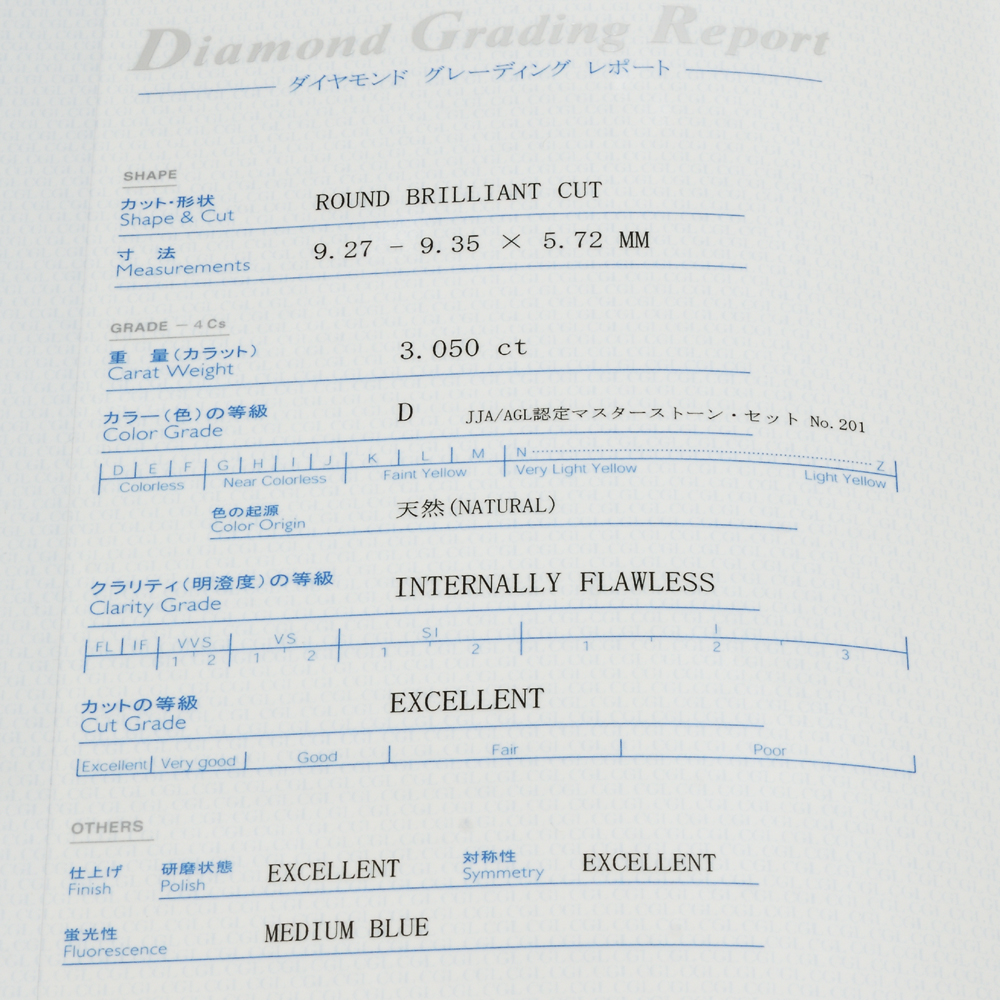 Diamond Grading Report
ダイヤモンド グレーディング レポート
SHAPE
カット・形状 ROUND BRILLIANT CUT
Shape & Cut
寸 法 9.27 - 9.35 × 5.72 MM
Measurements
GRADE - 4Cs
重 量(カラット) 3.050 ct
Carat Weight
カラー(色)の等級 D JJA/AGL認定マスターストーン・セット No.201
Color Grade
D E F G H I J K L M N Z
Colorless Near Colorless Faint Yellow Very Light Yellow Light Yellow
色の起源 天然(NATURAL)
Color Origin
クラリティ(明澄度)の等級 INTERNALLY FLAWLESS
Clarity Grade
FL IF VVS VS SI I
1 2 1 2 1 2 1 2 3
カットの等級 EXCELLENT
Cut Grade
Excellent Very good Good Fair Poor
OTHERS
仕上げ 研磨状態 EXCELLENT 対称性 EXCELLENT
Finish Polish Symmetry
蛍光性 MEDIUM BLUE
Fluorescence